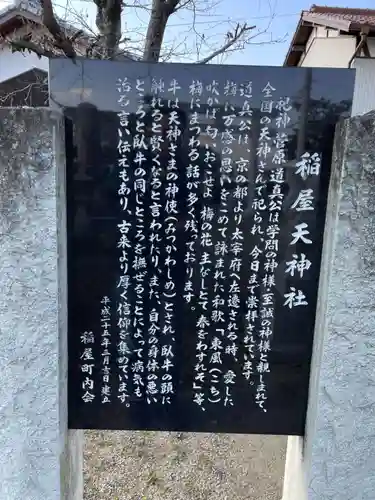 稲屋天神社
祀神菅原道真公は学問の神様、至誠の神様と親しまれて、
全国の天神さんで祀られ、今日まで崇拝されています。
道真公は、京の都より太宰府へ左遷される時、愛した
梅に万感の思いをこめて詠まれた和歌「東風(こち)
吹かば 匂いおこせよ 梅の花 主なしとて 春をわすれそ」等、
梅にまつわる話が多く残っております。
牛は天神さまの神使(みつかわしめ)とされ、臥牛の頭に
触れると賢くなると言われたり、また、自分の身体の悪い
ところと臥牛の同じところを撫ぜることによって病気も
治る言い伝えもあり、古来より厚く信仰を集めています。
平成二十五年三月吉日建立
稲屋町内会